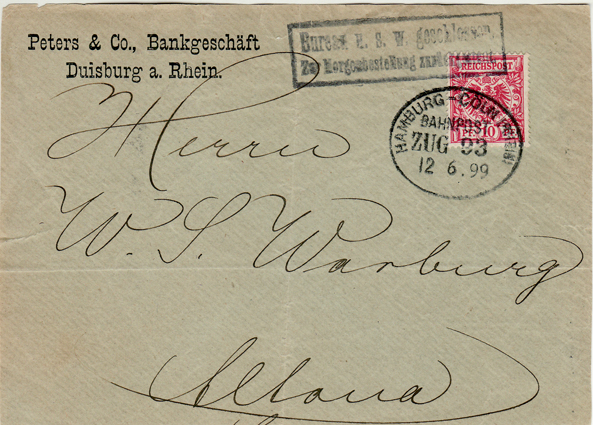 Peters & Co., Bankgeschäft
Duisburg a. Rhein.
Bureau H. S. W. geschlossen.
Zur Morgenbestellung
REICHSPOST
PF 10
HAMBURG - CÖLN (RHEIN)
BAHNPOST
ZUG 93
12 6.99
Herrn
W. S. Warburg
Altona